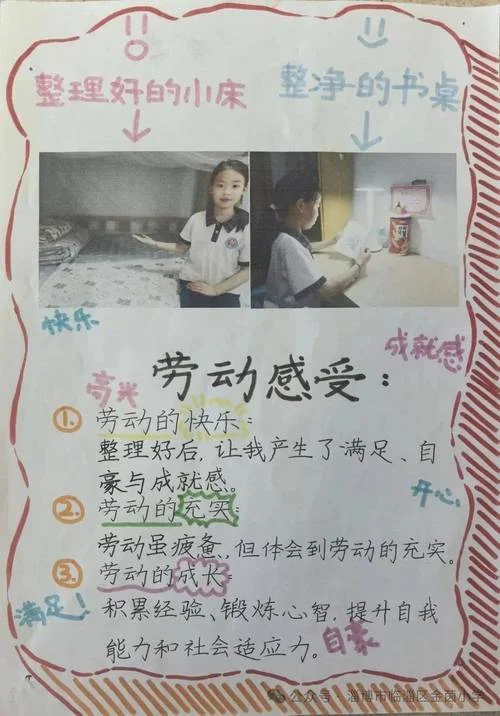 整理好的小床
整净的书桌
快乐
成就感
劳动感受：
高光
①. 劳动的快乐：
整理好后，让我产生了满足、自
豪与成就感。
开心
②. 劳动的充实：
劳动虽疲惫，但体会到劳动的充实。
③. 劳动的成长：
满足！
积累经验、锻炼心智，提升自我
能力和社会适应力。
自豪
公众号·淄博市临淄区金茵小学